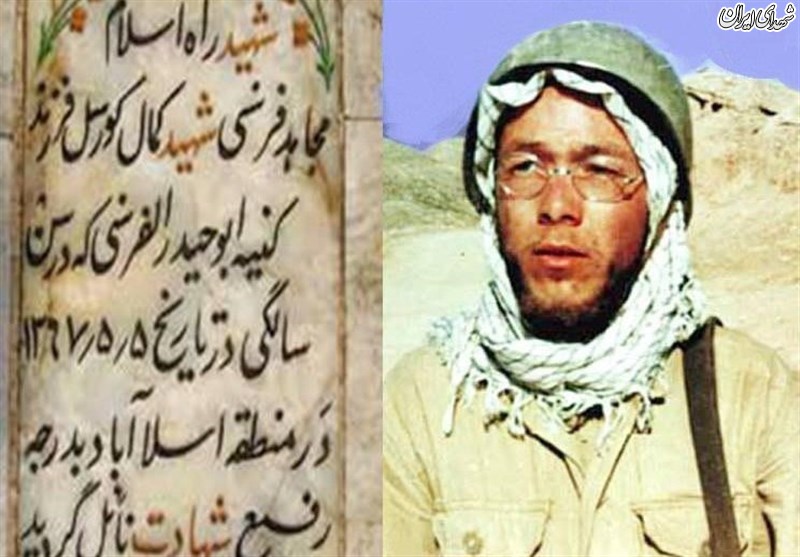 شهید راه اسلام
مجاهد فرنسی شهید کمال کورسل فرزند
کنیه ابوحیدر الفرنسی که در سن
سالگی در تاریخ ۱۳۶۷٫۵٫۵
در منطقه اسلام آباد بدرجه
رفیع شهادت نائل گردید
شهدای ایران